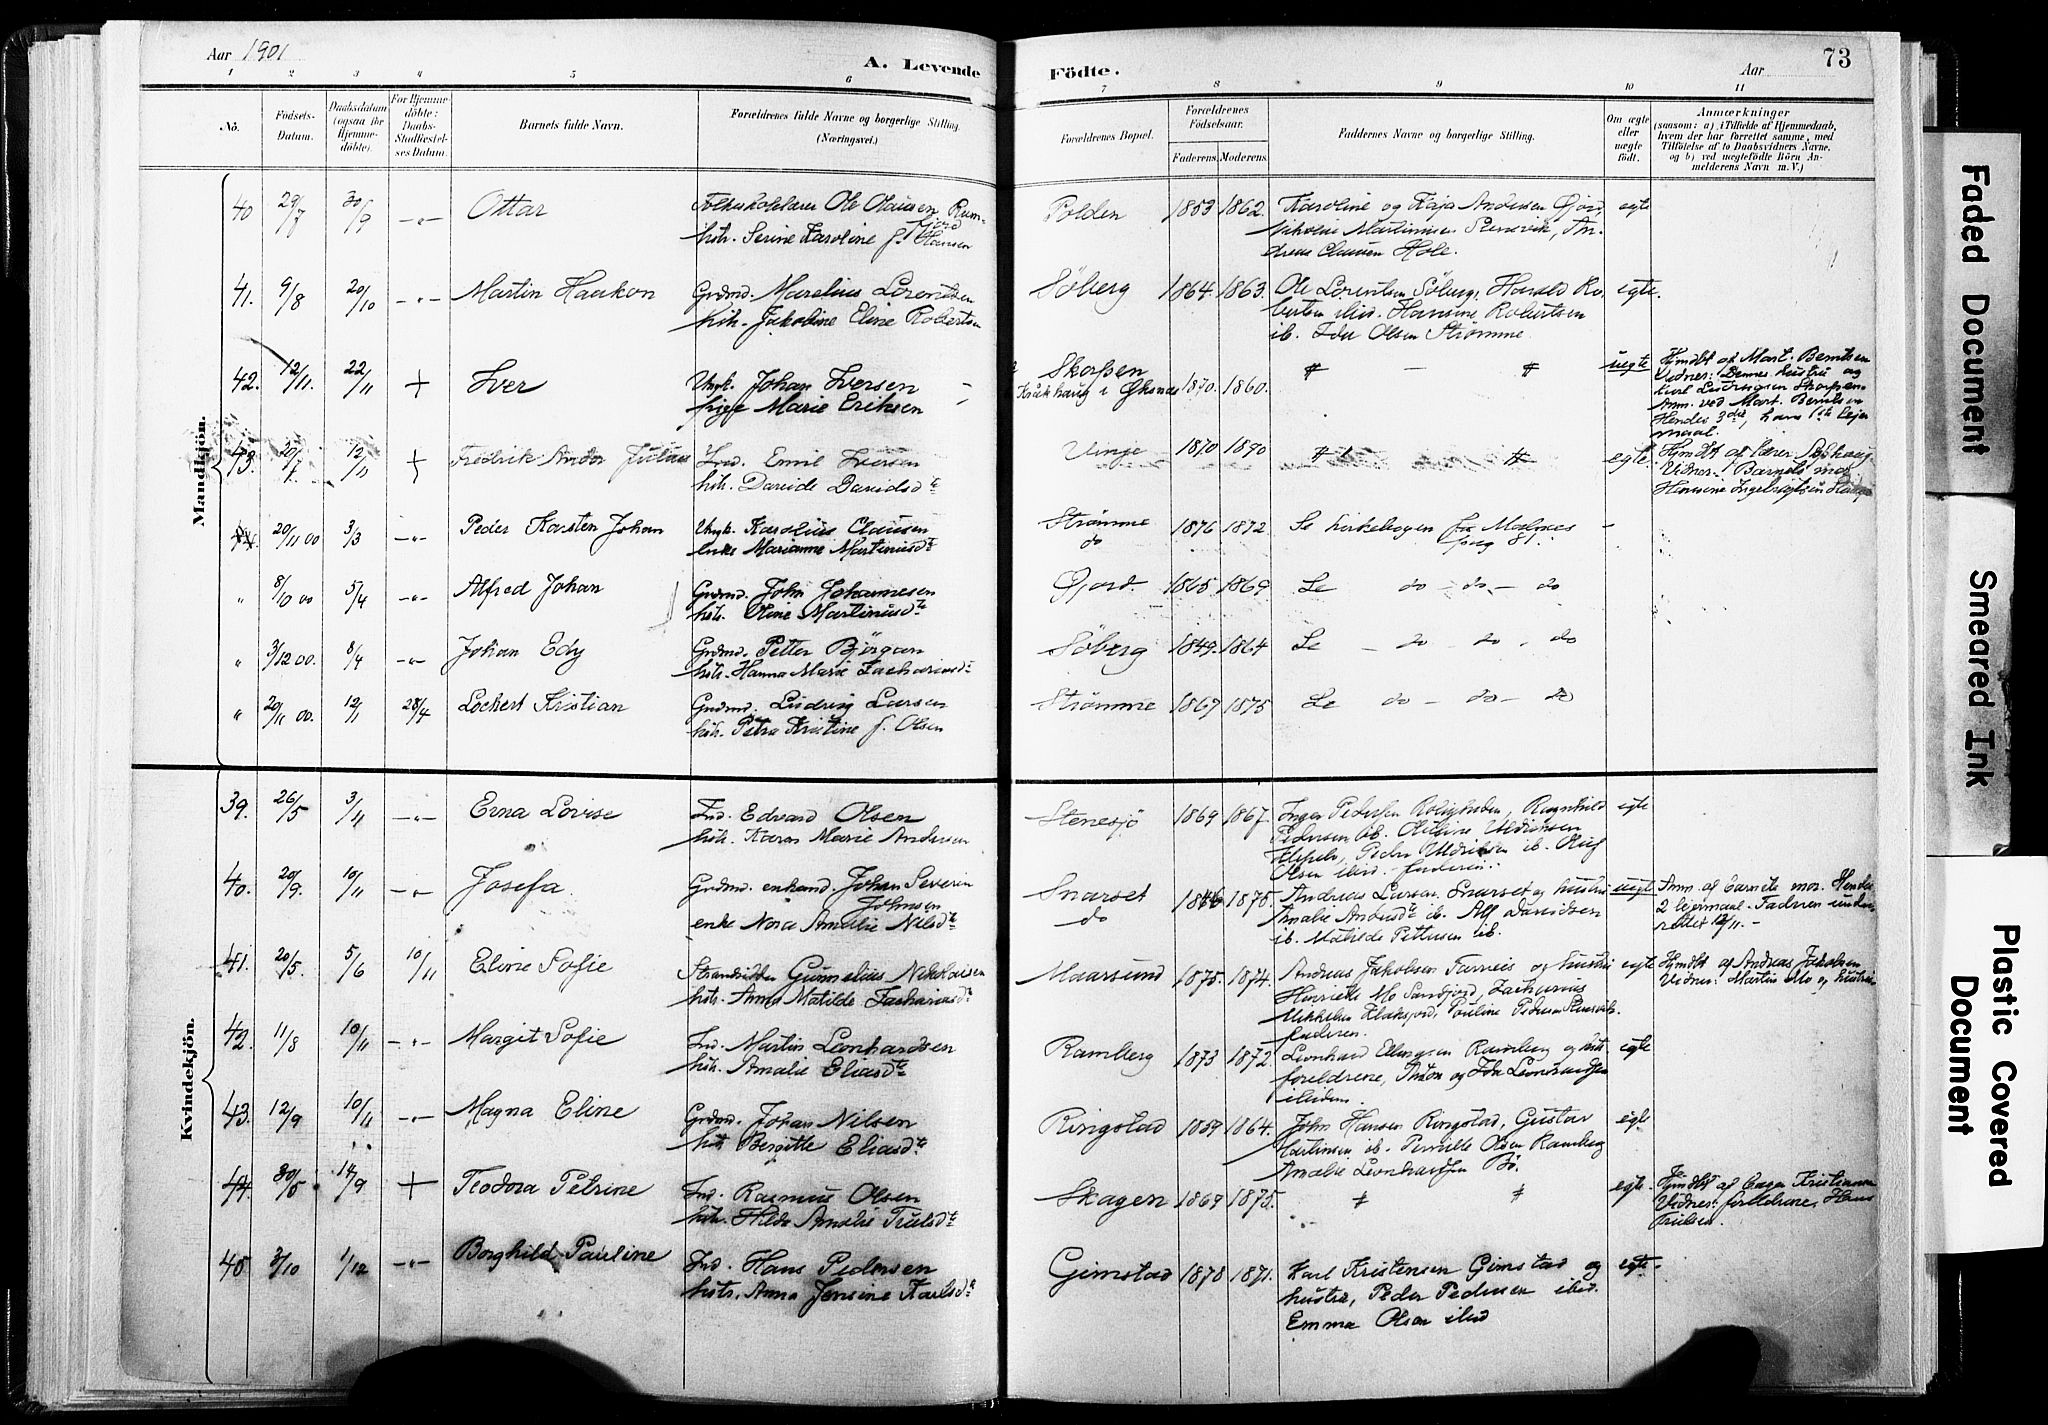 Aar 1901
A. Levende
Födte.
Aar
73
1 2 3 4 5 6 7 8 9 10 11
Nô.
Födsels-
Datum.
Daabsdatum
(ogsaa for
Hjemme-
döbte).
For Hjemme-
döbte:
Daabs-
Stadfæstel-
ses Datum.
Barnets fulde Navn.
Forældrenes fulde Navne og borgerlige Stilling
(Næringsvei.)
Forældrenes Bopæl.
Forældrenes
Födselsaar.
Faderens. Moderens.
Faddernes Navne og borgerlige Stilling.
Om ægte
eller
uægte
födt.
Anmærkninger
(saasom: a) i Tilfælde af Hjemmedaab,
hvem der har forrettet samme, med
Tilföielse af to Daabsvidners Navne,
og b) ved uægtefödte Börn An-
melderens Navn m. V.)
Mandkjön.
40 29/7 30/9 -"- Ottar
Folkeskolelærer Ole Olausen Ram-
fjord
hstr. Serine Karoline f. Hansen
Polden 1853 1862.
Karoline og Kaja Andersen Gjord,
Nikolai Martinusen Steinsvik, An-
dreas Clausen Hole.
egte
41. 9/8 20/10 -"- Martin Haakon
Grdmd. Marelius Lorentsen
hstr. Jakobine Eline Robertsen
Söberg 1864. 1863.
Ole Lorentsen Söberg, Harald Ro-
bertsen ibid. Hansine Robertsen
ib. Peder Olsen Strömme
egte.
42. 12/11. 22/11 + Iver
Ungk. Johan Iversen
Pige Marie Eriksen
Skorpen
i Øksnes 1870. 1860.
# - #
uegte
Hjmdbt af Mart. Berntsen
Vidner: Dennes hustru og
Ludvigsen Skorpen.
Anm. ved Mart. Berntsen
Hendes 3die, hans 1ste leier
maal.
43. 20/7 12/11 + Fredrik Andor Julius
Ind. Emil Iversen
hstr. Davide Davidsdte
Vinje 1870 1890
# #
egte.
Hjmdbt af Lærer
Vidner: Barnets mor,
Hansine Ingebrigtsen
44. 20/11 00 3/3 -"- Peder Karsten Johan
Ungk. Karolius Clausen
enke Marianne Martinusdte
Strömme
do 1876 1872
Se kirkebogen for Malnes
pag 81. -
" 8/10 00 5/4 -"- Alfred Johan
Grdmd. John Johannesen
hstr. Oline Martinusdte
Gjord. 1865 1869
Se do - do - do
" 3/12 00. 8/4 -"- Johan Edy
Grdmd. Petter Björgan
hstr. Hanna Marie Zachariasdte
Söberg 1849. 1864
Se - do - do - do
" 20/11 00. 12/1 28/4 Lockert Kristian
Grdmd. Ludvig Larsen
hstr. Petra Kristine f. Olsen
Strömme 1867 1875
Se do - do - do
Kvindekjön.
39. 26/5 3/11 -"- Erna Lovise
Ind. Edvard Olsen
hstr. Karen Marie Andersen
Stenesjö 1869 1867.
Inger Pedersen Roligheden, Ragnhild
Pedersen ib. Uldriksen
Peder Uldriksen ib.
Olsen ibid. faderen.
egte
40. 20/9. 10/11 -"- Josefa.
Grdmd. enkemd. Johan Severin
Johnsen
enke Nora Amalie Nilsdte
Snarset
do 1846 1875.
Andreas Larsen Snarset og hustru
Amalie Andersdte ib. Alf Davidsen
ib. Matilde Pettersen ib.
uegte
Anm. af barnets mor. Hendes
2 leiermaal. Faderen under-
rettet 12/11. -
41. 20/5. 5/6 10/11 Eline Sofie
Strandsidder Gunnelius Nikolaisen
hstr. Anna Matilde Zachariasdte
Maarsund 1875. 1874.
Andreas Jakobsen og hustru
Henriette Mo Sandfjord, Zacharias
Mikkelsen Pauline Pedersen Steinsvik.
faderen.
egte
Hjmdbt af Andreas Jakobsen
Vidner: Martin Mo og hustru
42. 11/8 10/11 -"- Margit Sofie
Ind. Martin Leonhardsen
hstr. Amalie Eliasdte
Ramberg 1873 1872.
Leonhard Ellingsen Ramberg og hustru
foreldrene, Anton og Ida Leonhardsen
ibidem.
egte
43. 12/9 10/11 -"- Magna Eline
Grdmd. Johan Nilsen
hst. Bergitte Eliasdte
Ringstad 1859 1864.
John Hansen Ringstad, Gustav
Martinsen ib. Pernille Olsen Ramberg
Amalie Leonhardsen Bö.
egte
44. 30/5 14/9 + Teodora Petrine
Ind. Rasmus Olsen
hstr. Hilda Amalie Trulsdte
Skagen 1869 1875.
# #
egte.
Hjmdbt af Kristiansen
Vidner: foreldrene, Hans
Trulsen.
45 3/10 1/12 -"- Borghild Pauline
Ind. Hans Pedersen
hstr. Anna Jensine Karlsdte
Gimstad 1878 1871.
Karl Kristensen Gimstad og
hustru, Peder Pedersen ibid.
Emma Olsen ibid
egte.
Faded Document
Smeared Ink
Plastic Covered
Document